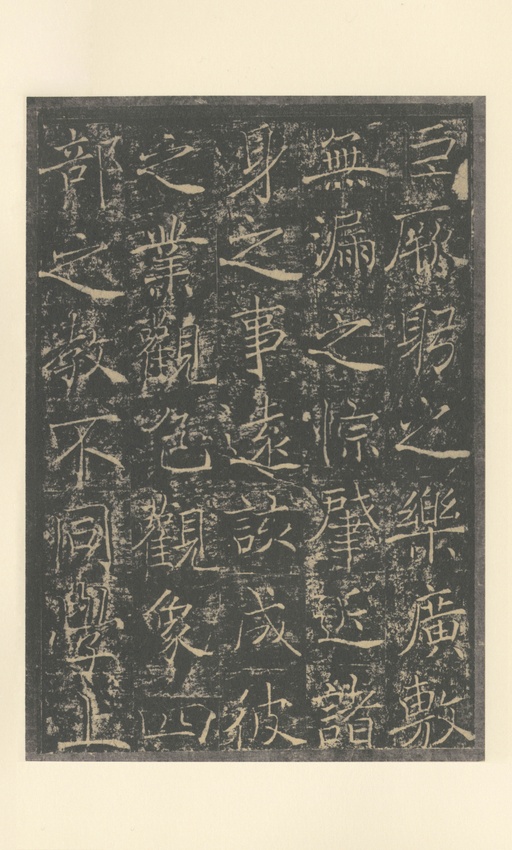 厥躬之樂廣敷
無漏之悰肈近諸
身之事遠該成彼
之業觀色觀象四
部之教不同學上